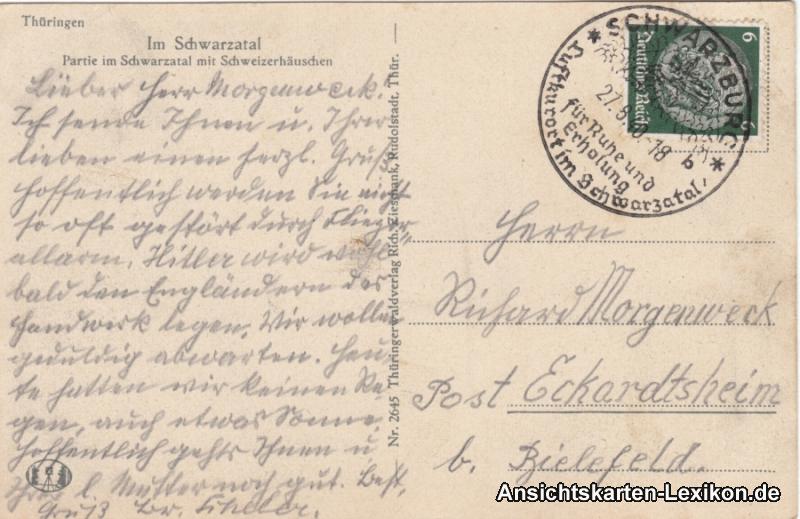 Thüringen
Im Schwarzatal
Partie im Schwarzatal mit Schweizerhäuschen
Lieber Herr Morgenweck.
Ich sende Ihnen u. Ihrer
lieben einen herzl. Gruß
Hoffentlich werden Sie nicht
so oft gestört durch Flieger
allarm. Hitler wird wohl
bald den Engländern das
Handwerk legen. Wir wollen
geduldig abwarten. Heu-
te hatten wir keinen Re-
gen, auch etwas Sonne.
Hoffentlich gehts Ihnen u
Ihrer l. Mutter noch gut. Best.
Gruß Br.
Nr. 2645 Thüringerwaldverlag Rich. Zieschank, Rudolstadt, Thür.
* SCHWARZBURG *
27.8. -18
b
für Ruhe und
Erholung
Luftkurort im Schwarzatal,
6
Deutsches Reich
6
Herrn
Richard Morgenweck
Post Eckardtsheim
b. Bielefeld.
Ansichtskarten-Lexikon.de